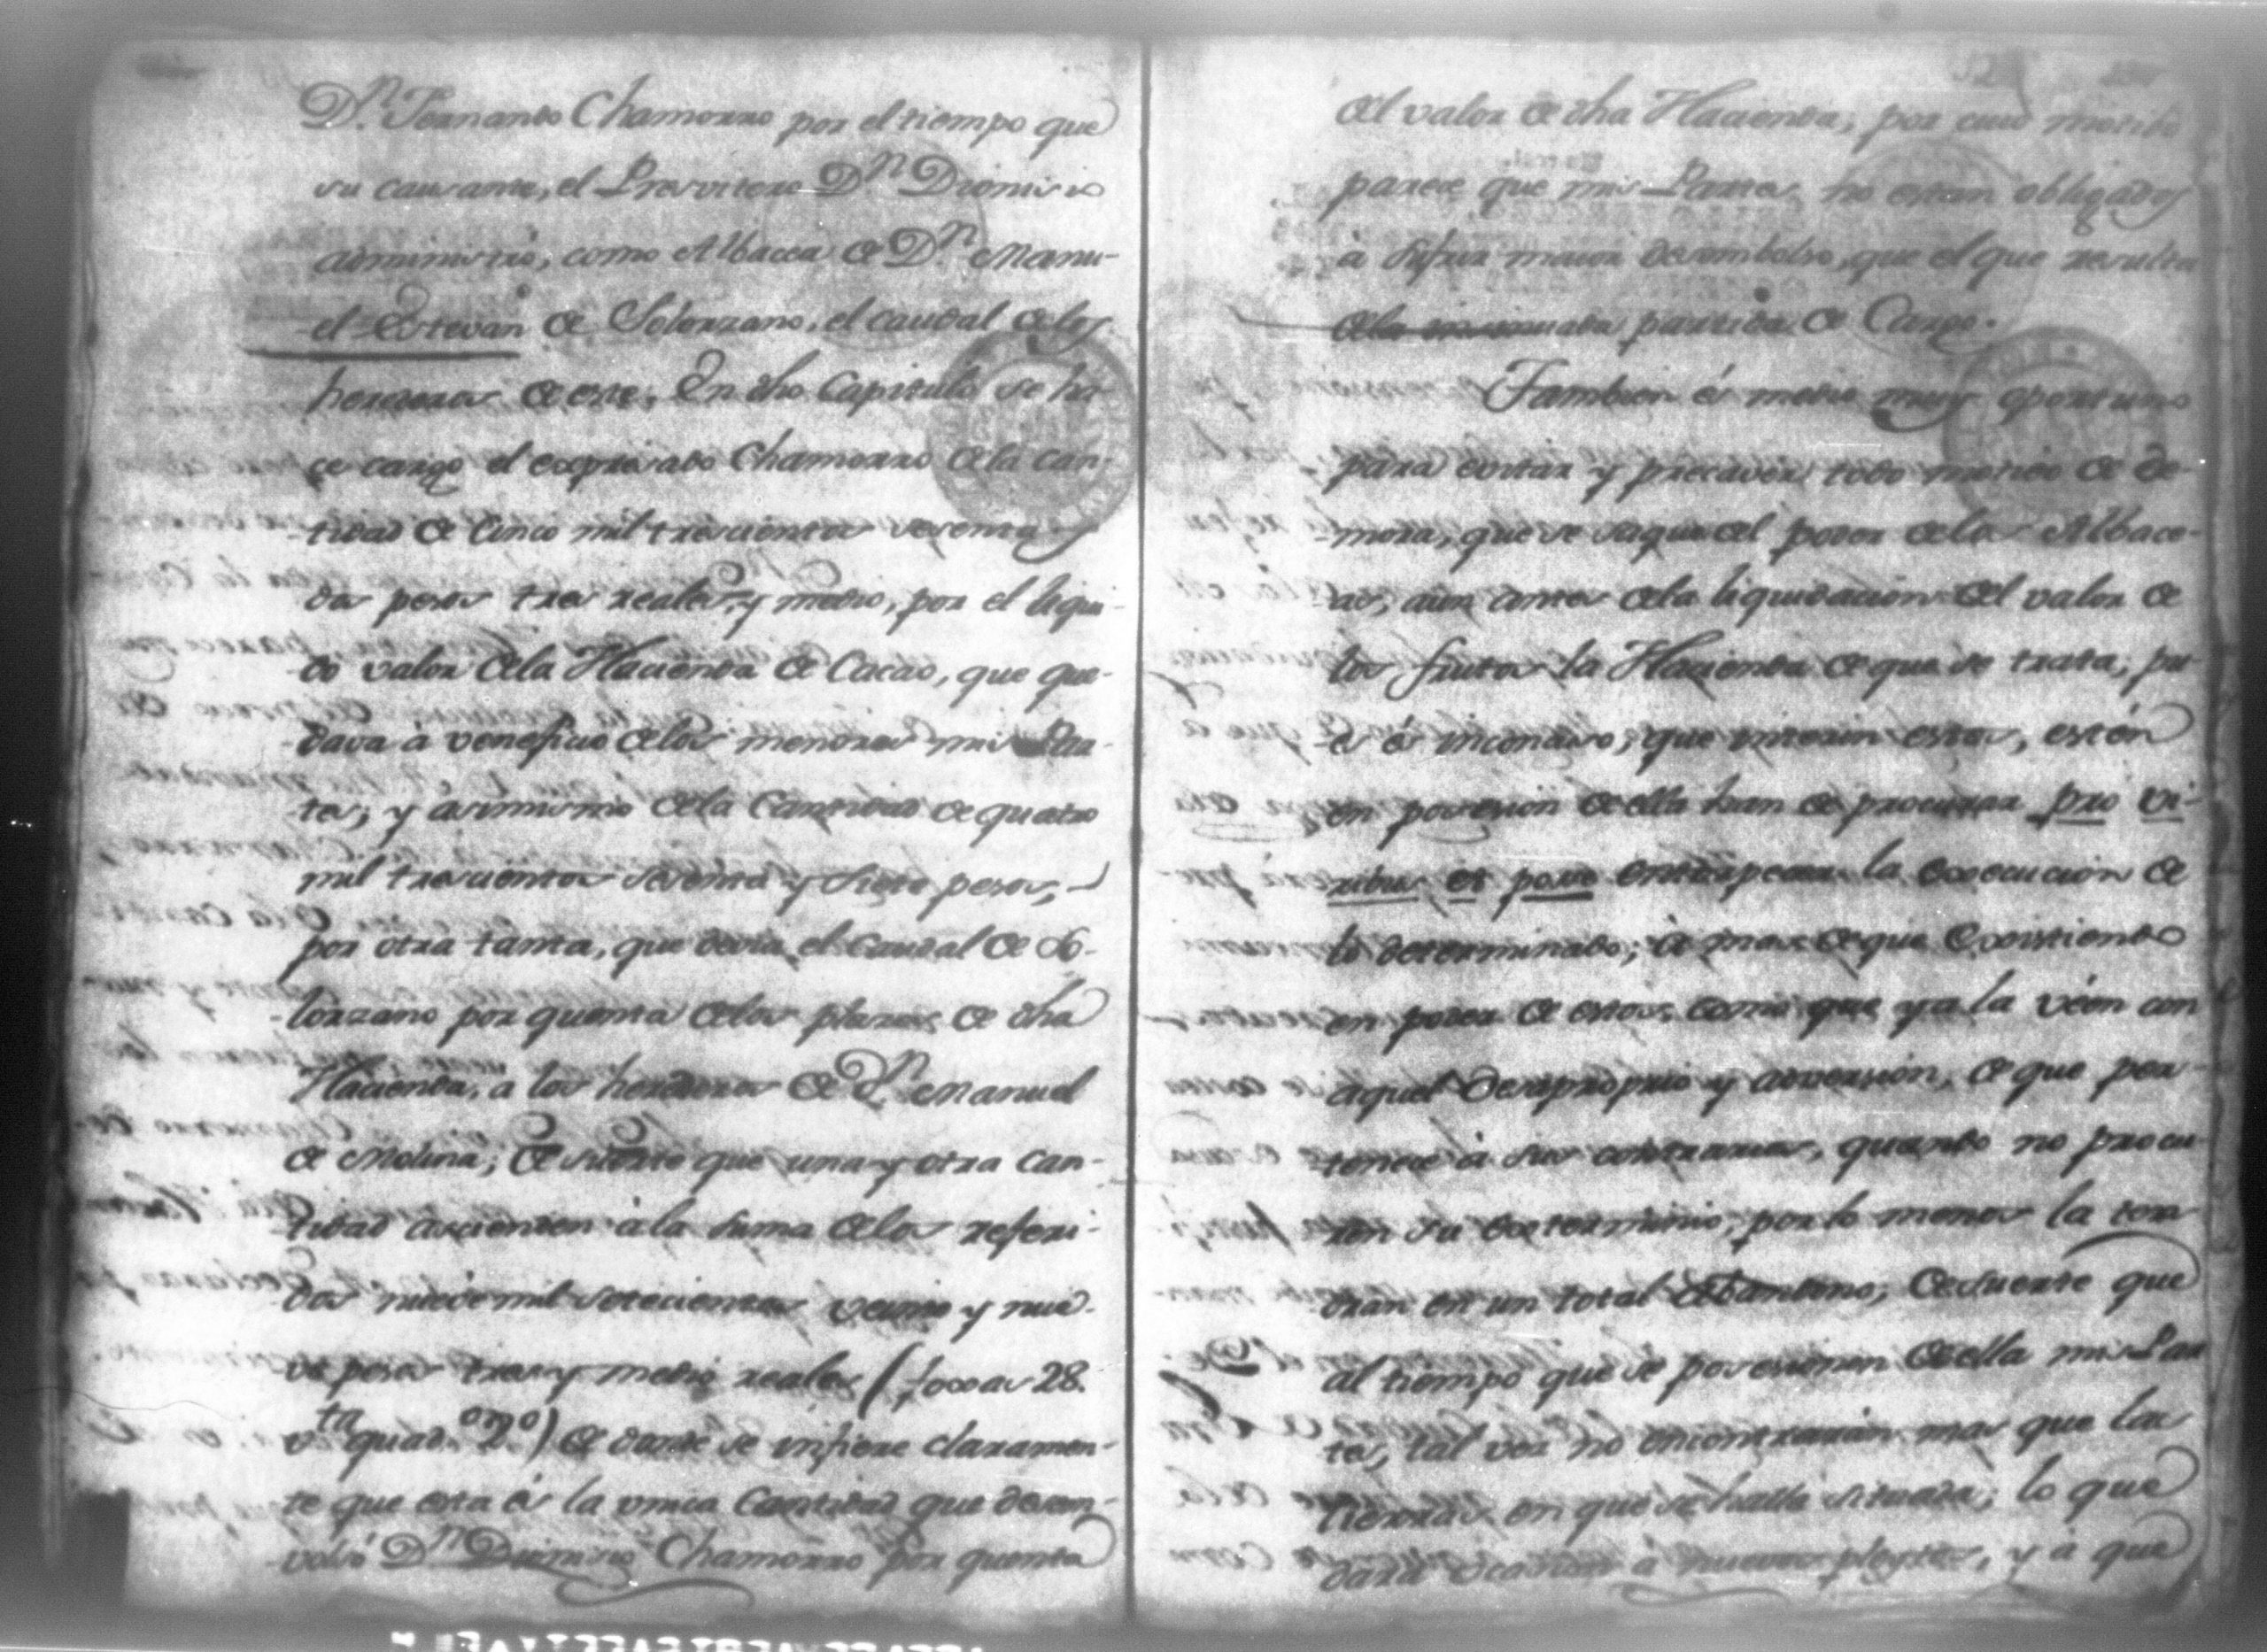 Dn. Fernando Chamorro por el tiempo que
su causante, el Presvitero Dn Dionisio
administró, como Albacea de Dn. Manu-
el Estevan de Solorzano, el caudal de los
herederos de este. En dho Capitulo se ha-
çe cargo el expresado Chamorro de la can-
tidad de Cinco mil trescientos sesenta
dos pesos tres reales, y medio, por el liqui-
do valor de la Hacienda de Cacao, que que-
dava à veneficio de los menores mis Par-
tes; y asimismo de la Cantidad de quatro
mil trescientos sesenta y siete pesos,
por otra tanta, que devia el Caudal de So-
lorzano por quenta de los plazos de dha
Hacienda, a los herederos de Dn. Manuel
de Molina; de suerte que una y otra can-
tidad ascienden à la suma de los referi-
dos nueve mil setecientos veinte y nue-
ve pesos tres y medio reales (foxas 28.
vta quad.orno 2.o) de donde se infiere claramen-
te que esta és la unica Cantidad que desem-
volsó Dn Dionisio Chamorro por quenta
del valor de dha Hacienda, por cuio motibo
parece que mis Partes no esten obligados
à sufrir maior desembolso, que el que resulta
de la insinuada partida de Cargo.
Tambien és medio muy oportuno
para evitar y precaver todo motibo de de-
mora, que se saque del poder de los Albace-
as, aun antes de la liquidacion del valor de
los frutos la Hacienda de que se trata; pu-
es és inconcuso, que interin estos, estén
en posesion de ella han de procurar pro vi-
ribus et pose entorpecer la execucion de
lo determinado; à mas de que Existiendo
en poder de estos, como que ya la véen con
aquel desapropio y adversion, de que per-
tenece à sus contrarios, quando no procu-
ren su exterminio, por lo menos la ten-
dran en un total abandono; de suerte que
al tiempo que se posesionen de ella mis Par-
tes, tal vez no encontrarán mas que las
tierras en que se halla situada; lo que
dará ocasion à nuevos pleytos, y à que